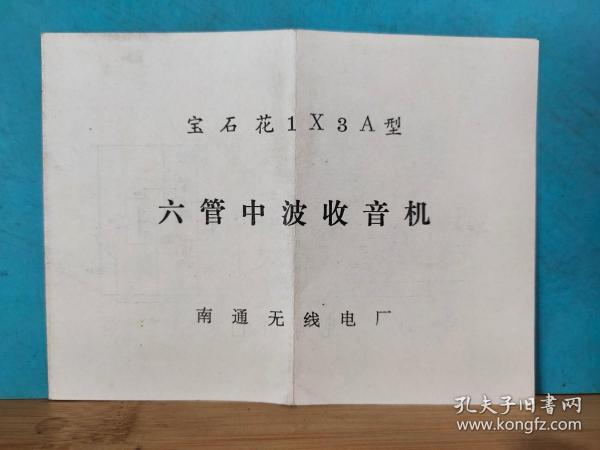 宝石花1X3A型
六管中波收音机
南通无线电厂
孔夫子旧书网
www.kongfz.com